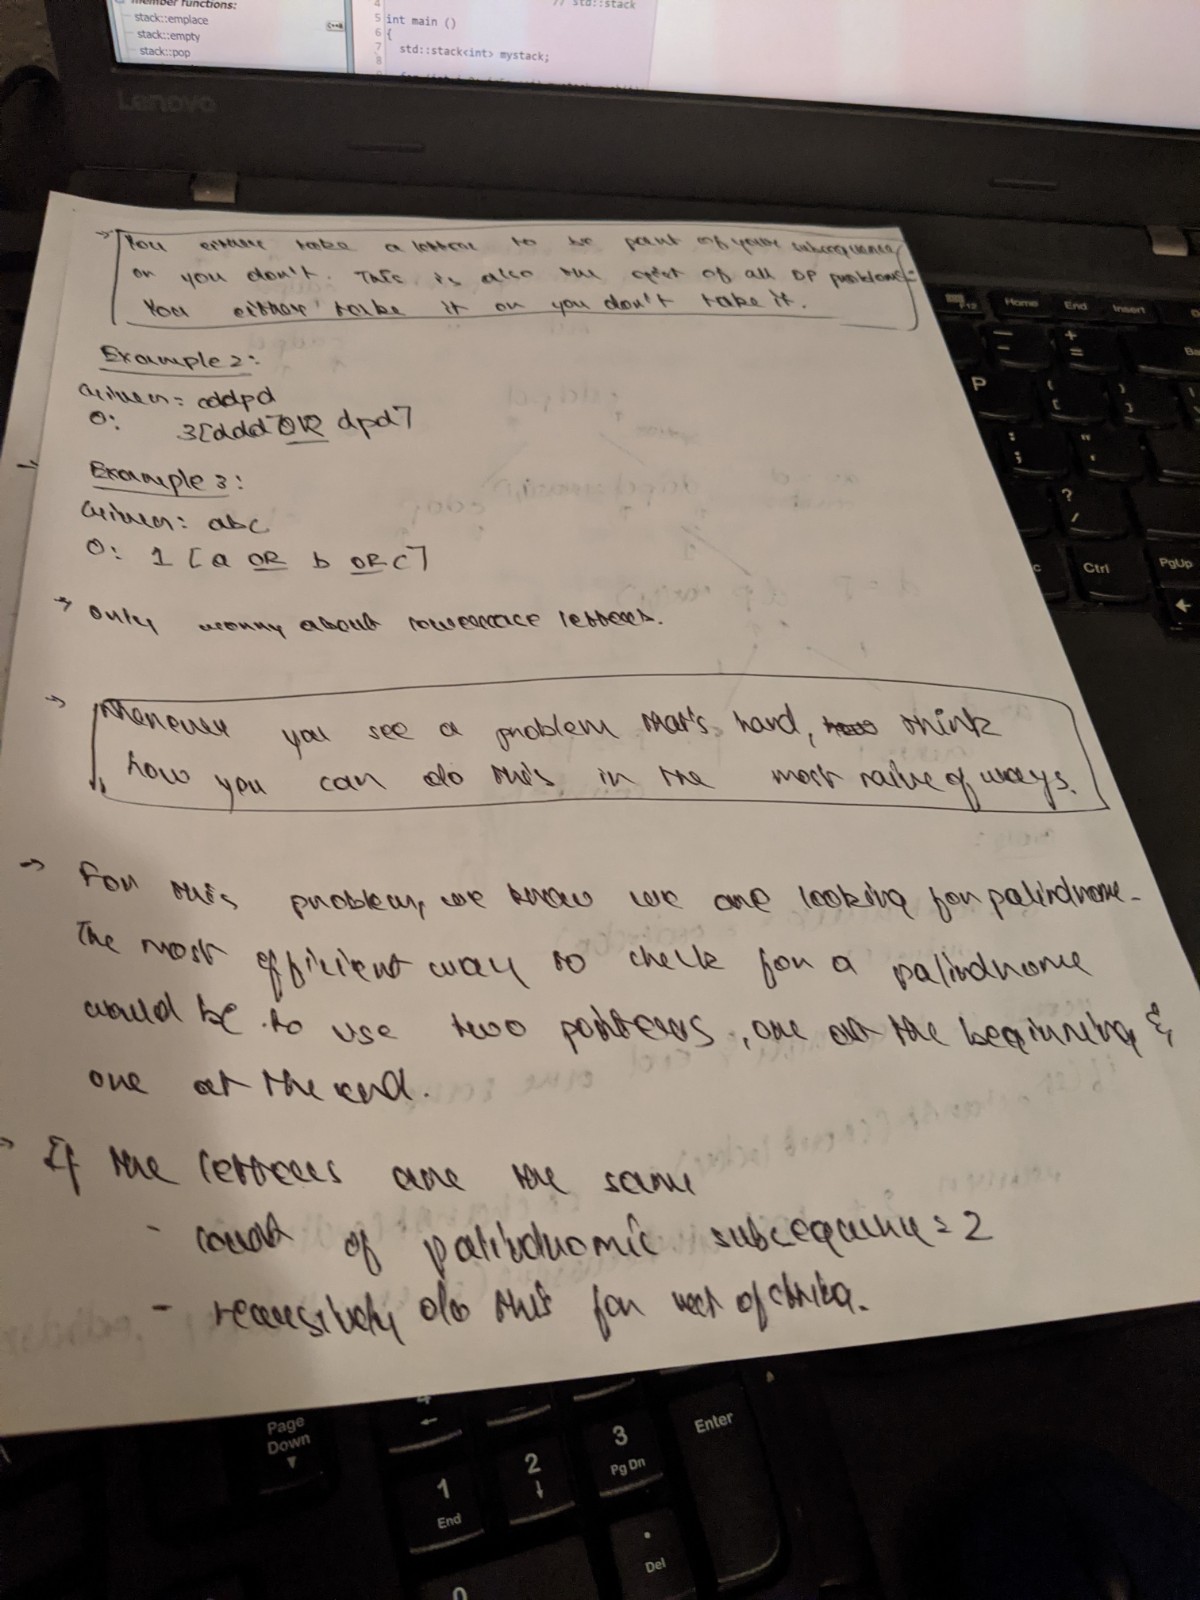 member functions:
stack::emplace
stack::empty
stack::pop
4
5 int main ()
6 {
7 std::stack<int> mystack;
8
// std::stack
Lenovo
→ You either take a letter to be part of your subsequence
or you don't. This is also the of all DP problems:
You either take it or you don't take it.
Example 2:
Given: addpd
O: 3 [ddd OR dpd]
Example 3:
Given: abc
O: 1 [a OR b OR c]
→ Only worry about lowercase letters.
→ Whenever you see a problem that's hard, think
how you can do this in the most naive of ways.
→ For this problem, we know we are looking for palindrome.
The most efficient way to check for a palindrome
would be to use two pointers, one at the beginning &
one at the end.
→ If the letters are the same
- count of palindromic subsequence = 2
- recursively do this for rest of string.
F12
Home
End
Insert
P
Ctrl
PgUp
Page
Down
4
1
End
2
3
Pg Dn
Enter
.
Del
0